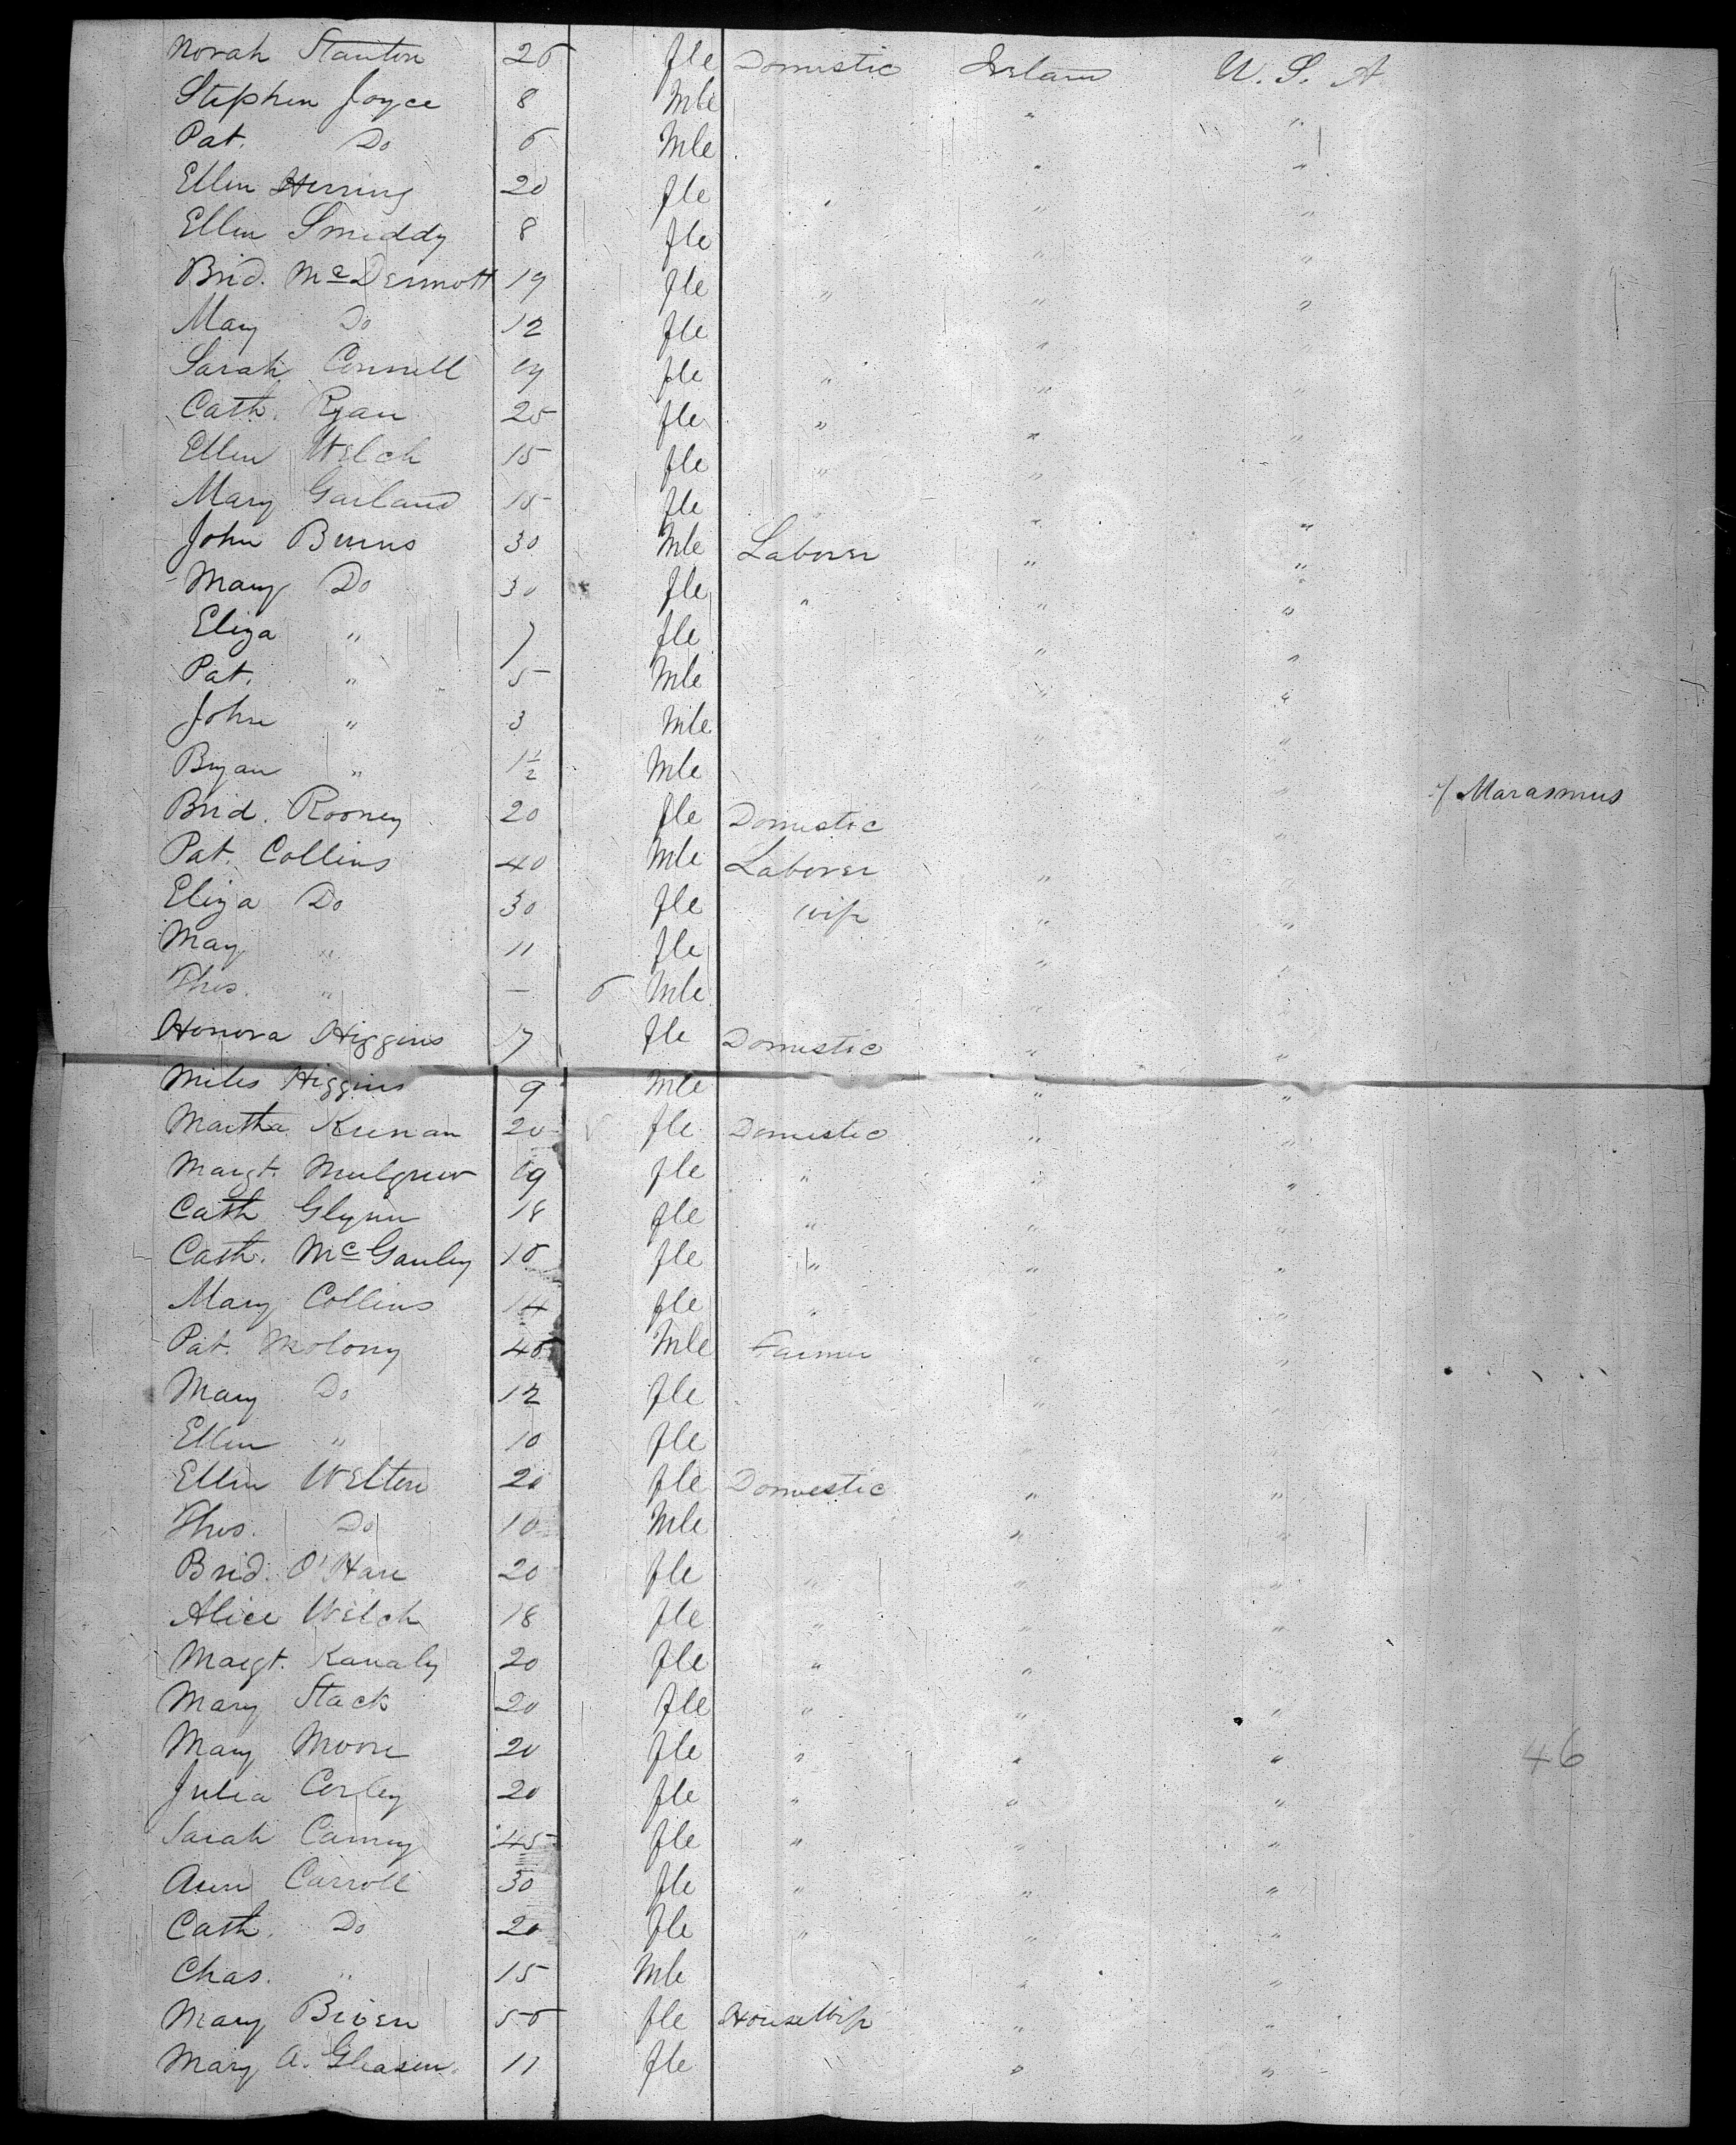 Norah Stanton 26 fle Domestic Ireland U. S. A
Stephen Joyce 8 Mle " "
Pat. Do 6 Mle " "
Ellen Herring 20 fle " " "
Ellen Smiddy 8 fle " "
Brid. McDermott 19 fle " " "
Mary Do 12 fle " "
Sarah Connell 19 fle " " "
Cath. Ryan 25 fle " " "
Ellen Welch 15 fle " " "
Mary Garland 18 fle " " "
John Burns 30 Mle Laborer " "
Mary Do 30 fle " " "
Eliza " 7 fle " "
Pat. " 5 Mle " "
John " 3 Mle " "
Bryan " 1½ Mle " " Marasmus
Brid. Rooney 20 fle Domestic " "
Pat. Collins 40 Mle Laborer " "
Eliza Do 30 fle wife " "
May " 11 fle " "
Thos. " — 6 Mle " "
Honora Higgins 17 fle Domestic " "
Miles Higgins 9 Mle " "
Martha Keenan 20 fle Domestic " "
Margt. Mulgrew 19 fle " " "
Cath Glynn 18 fle " " "
Cath. McGauley 16 fle " " "
Mary Collins 14 fle " " "
Pat. Molony 46 Mle Farmer " "
Mary Do 12 fle " "
Ellen " 10 fle " "
Ellen Welton 20 fle Domestic " "
Thos. Do 10 Mle " "
Brid. O'Hare 20 fle " " "
Alice Welch 18 fle " " "
Margt. Kanaly 20 fle " " "
Mary Stack 20 fle " " "
Mary Moore 20 fle " " " 46
Julia Corley 20 fle " " "
Sarah Carney 45 fle " " "
Ann Carroll 30 fle " " "
Cath. Do 20 fle " " "
Chas. " 15 Mle " "
Mary Biven 56 fle HouseWife " "
Mary A. Gleason 11 fle " "